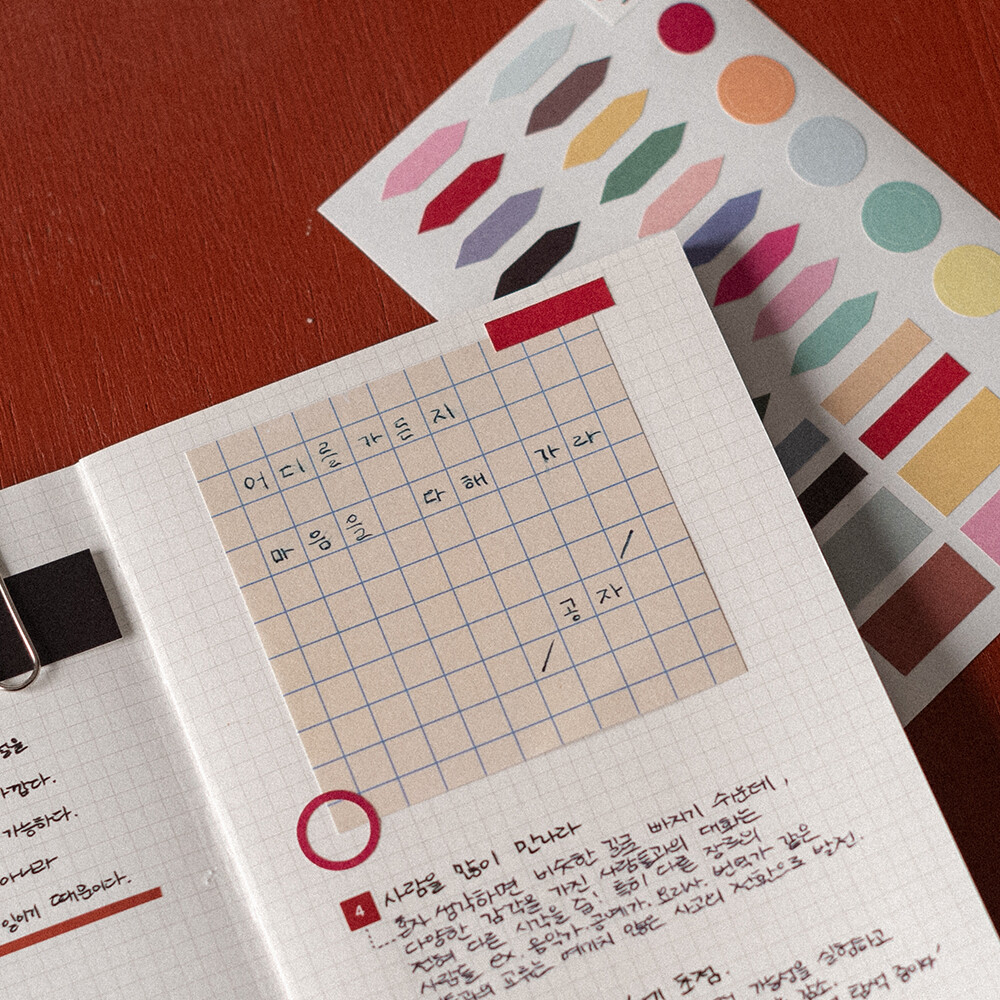 가깝다.
가능하다.
아니라
있기 때문이다.
어디를 가든지
마음을 다해 가라
/
공자
/
4 사람을 많이 만나라
혼자 생각하면 비슷한 길로 빠지기 쉬운데,
다양한 감각을 가진 사람들과의 대화는
전혀 다른 시각을 줌! 특히 다른 장르의
사람들 ex. 음악가, 공예가, 요리사, 번역가 같은
교류는 예기치 않은 사고의 전환으로 발전.
초점.
가능성을 실험하고
감소.